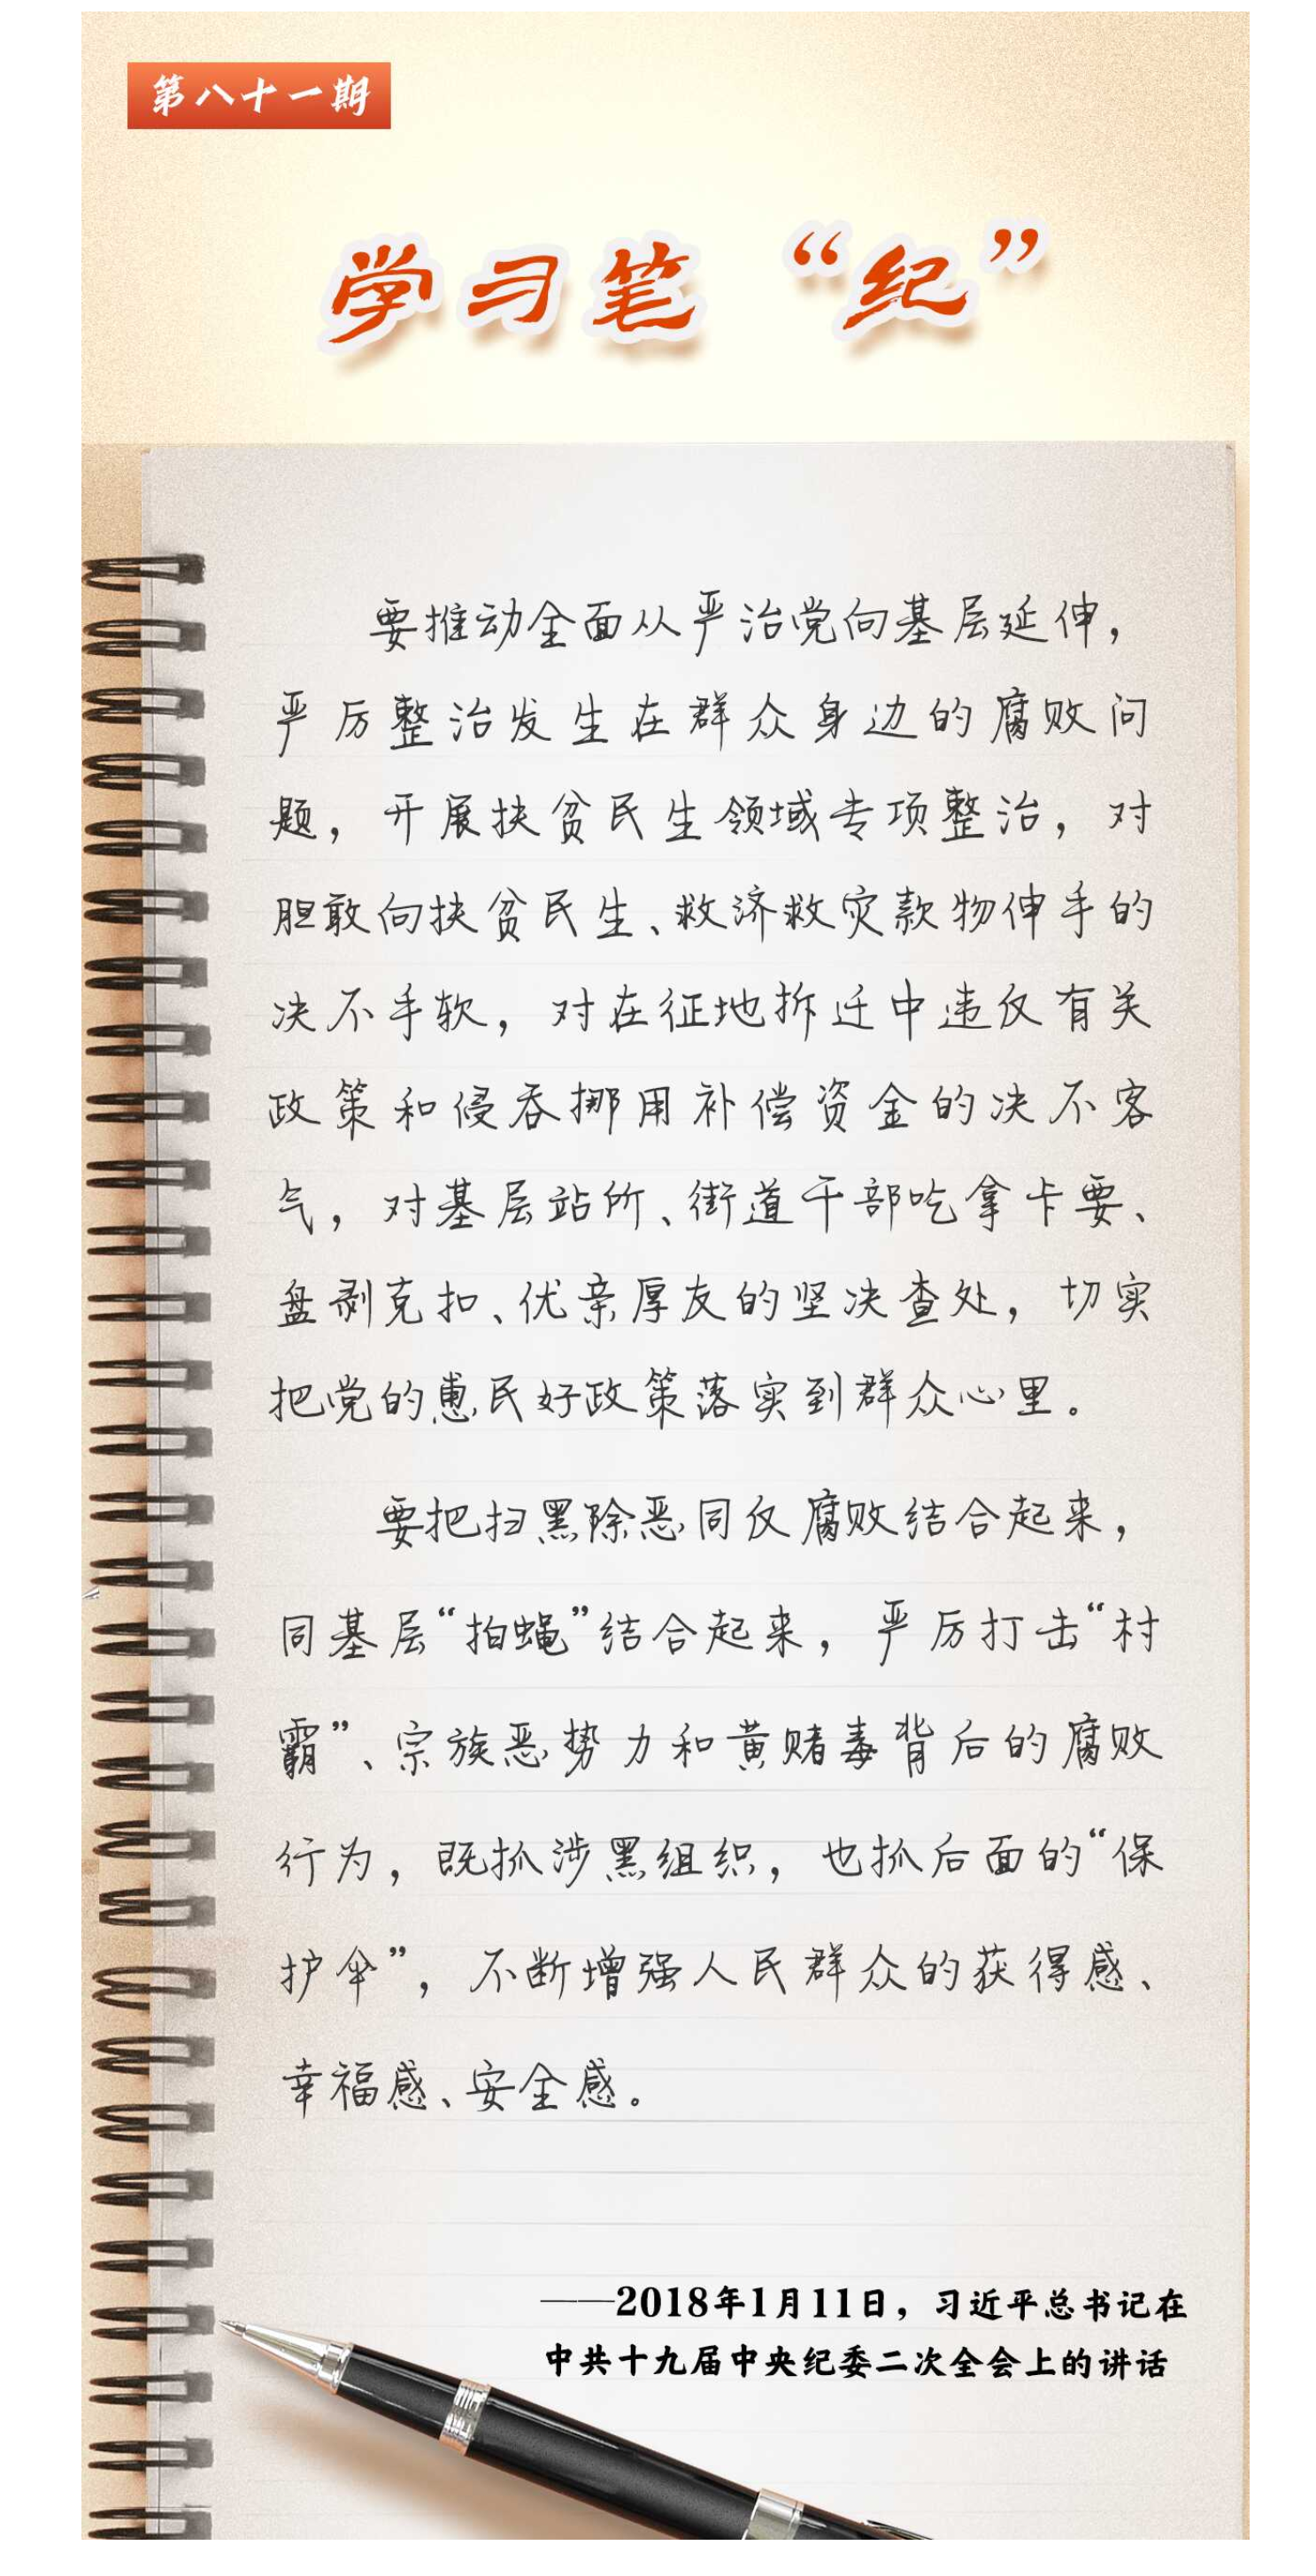 第八十一期
学习笔“纪”
要推动全面从严治党向基层延伸，
严厉整治发生在群众身边的腐败问
题，开展扶贫民生领域专项整治，对
胆敢向扶贫民生、救济救灾款物伸手的
决不手软，对在征地拆迁中违反有关
政策和侵吞挪用补偿资金的决不客
气，对基层站所、街道干部吃拿卡要、
盘剥克扣、优亲厚友的坚决查处，切实
把党的惠民好政策落实到群众心里。
要把扫黑除恶同反腐败结合起来，
同基层“拍蝇”结合起来，严厉打击“村
霸”、宗族恶势力和黄赌毒背后的腐败
行为，既抓涉黑组织，也抓后面的“保
护伞”，不断增强人民群众的获得感、
幸福感、安全感。
——2018年1月11日，习近平总书记在
中共十九届中央纪委二次全会上的讲话